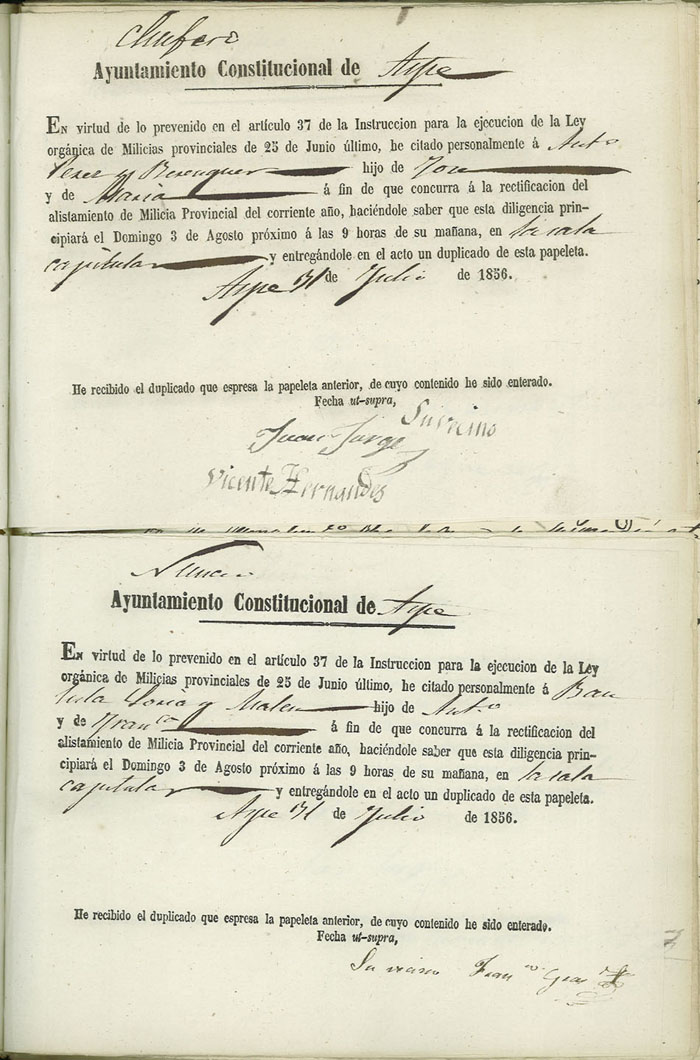 Chufero
Ayuntamiento Constitucional de Aspe
EN virtud de lo prevenido en el artículo 37 de la Instruccion para la ejecucion de la Ley
orgánica de Milicias provinciales de 25 de Junio último, he citado personalmente á Anto
Perez y Berenguer hijo de
y de Maria á fin de que concurra á la rectificacion del
alistamiento de Milicia Provincial del corriente año, haciéndole saber que esta diligencia prin-
cipiará el Domingo 3 de Agosto próximo á las 9 horas de su mañana, en la sala
capitular y entregándole en el acto un duplicado de esta papeleta.
Aspe 31 de Julio de 1856.
He recibido el duplicado que espresa la papeleta anterior, de cuyo contenido he sido enterado.
Fecha ut-supra,
Su vecino
Juan Jorge
Vicente Hernandes
Ayuntamiento Constitucional de Aspe
EN virtud de lo prevenido en el artículo 37 de la Instruccion para la ejecucion de la Ley
orgánica de Milicias provinciales de 25 de Junio último, he citado personalmente á Bau
y hijo de Anto
y de Franca á fin de que concurra á la rectificacion del
alistamiento de Milicia Provincial del corriente año, haciéndole saber que esta diligencia prin-
cipiará el Domingo 3 de Agosto próximo á las 9 horas de su mañana, en la sala
capitular y entregándole en el acto un duplicado de esta papeleta.
Aspe 31 de Julio de 1856.
He recibido el duplicado que espresa la papeleta anterior, de cuyo contenido he sido enterado.
Fecha ut-supra,
Su vecino Franco